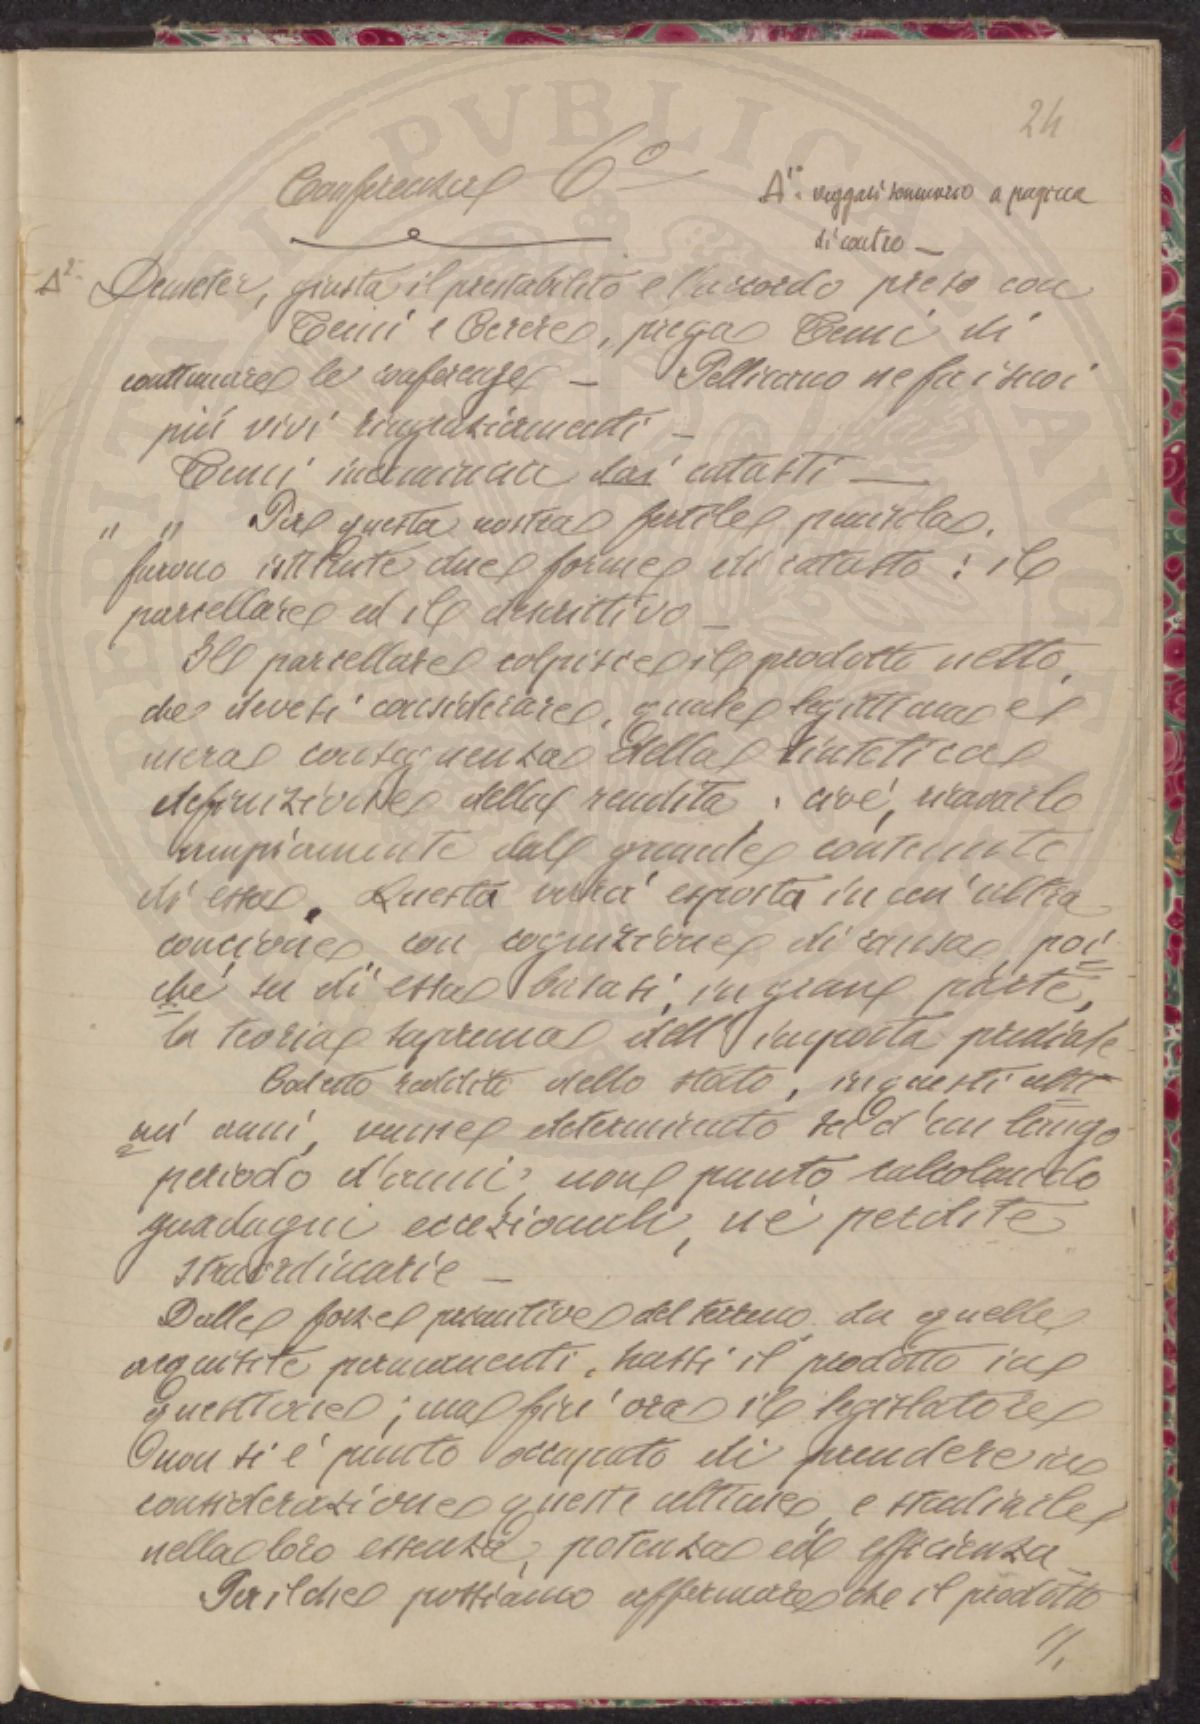 24
Conferenza 6°
A1° veggasi sommario a pagina
di contro —
A2° Demeter, giusta il prestabilito e l'accordo preso con
Temi e Cerere, prega Temi di
continuare le conferenze — Pellicano ne fa i suoi
più vivi ringraziamenti —
Temi incomincia dai catasti —
" " Per questa nostra fertile penisola,
furono istituite due forme di catasto: il
parcellare ed il descrittivo —
Il parcellare colpisce il prodotto netto,
che devesi considerare, quale legittima e
mera conseguenza della sintetica
definizione della rendita; cioè, ricavarlo
ampiamente dal grande contenuto
di essa. Questa verrà esposta in un'altra
concione, con cognizione di causa, poi
ché su di essa basasi, in gran parte,
la teoria suprema dell'imposta prediale
Codesto reddito dello stato, in questi ulti
mi anni, venne determinato su d'un lungo
periodo d'anni, non punto calcolando
guadagni eccezionali, nè perdite
straordinarie —
Dalle forze primitive del terreno, da quelle
acquisite permanenti, trassi il prodotto in
questione; ma fin'ora il legislatore
non si è punto occupato di prendere in
considerazione queste ultime, e studiarle
nella loro essenza, potenza ed efficienza —
Per il che possiamo affermare che il prodotto
//.